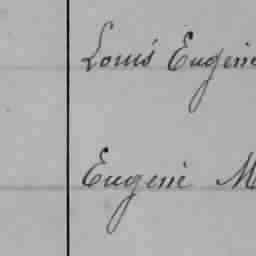 Louis Eugène
Eugène M